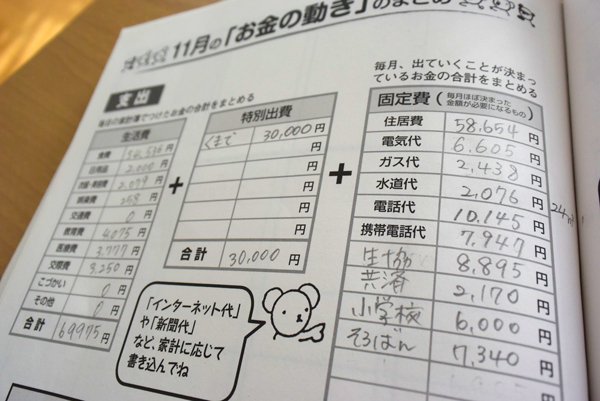 11月の「お金の動き」のまとめ
支出
毎日の家計簿でつけたお金の合計をまとめる
生活費
食費
日用品 2,000 円
円
娯楽費 258 円
交通費 0 円
教育費 4075 円
医療費 3,777 円
交際費 3,250 円
こづかい 0 円
その他 0 円
合計 69975 円
+
特別出費
くまで 30,000 円
円
円
円
円
合計 30,000 円
+
毎月、出ていくことが決まっ
ているお金の合計をまとめる
固定費 (毎月ほぼ決まった
金額が必要になるもの)
住居費 58,654 円
電気代 6,605 円
ガス代 2,438 円
水道代 2,076 円
電話代 10,145 円
携帯電話代 7,947 円
生協 8,895 円
共済 2,170 円
小学校 6,000 円
そろばん 7,340 円
円
「インターネット代」
や「新聞代」
など、家計に応じて
書き込んでね